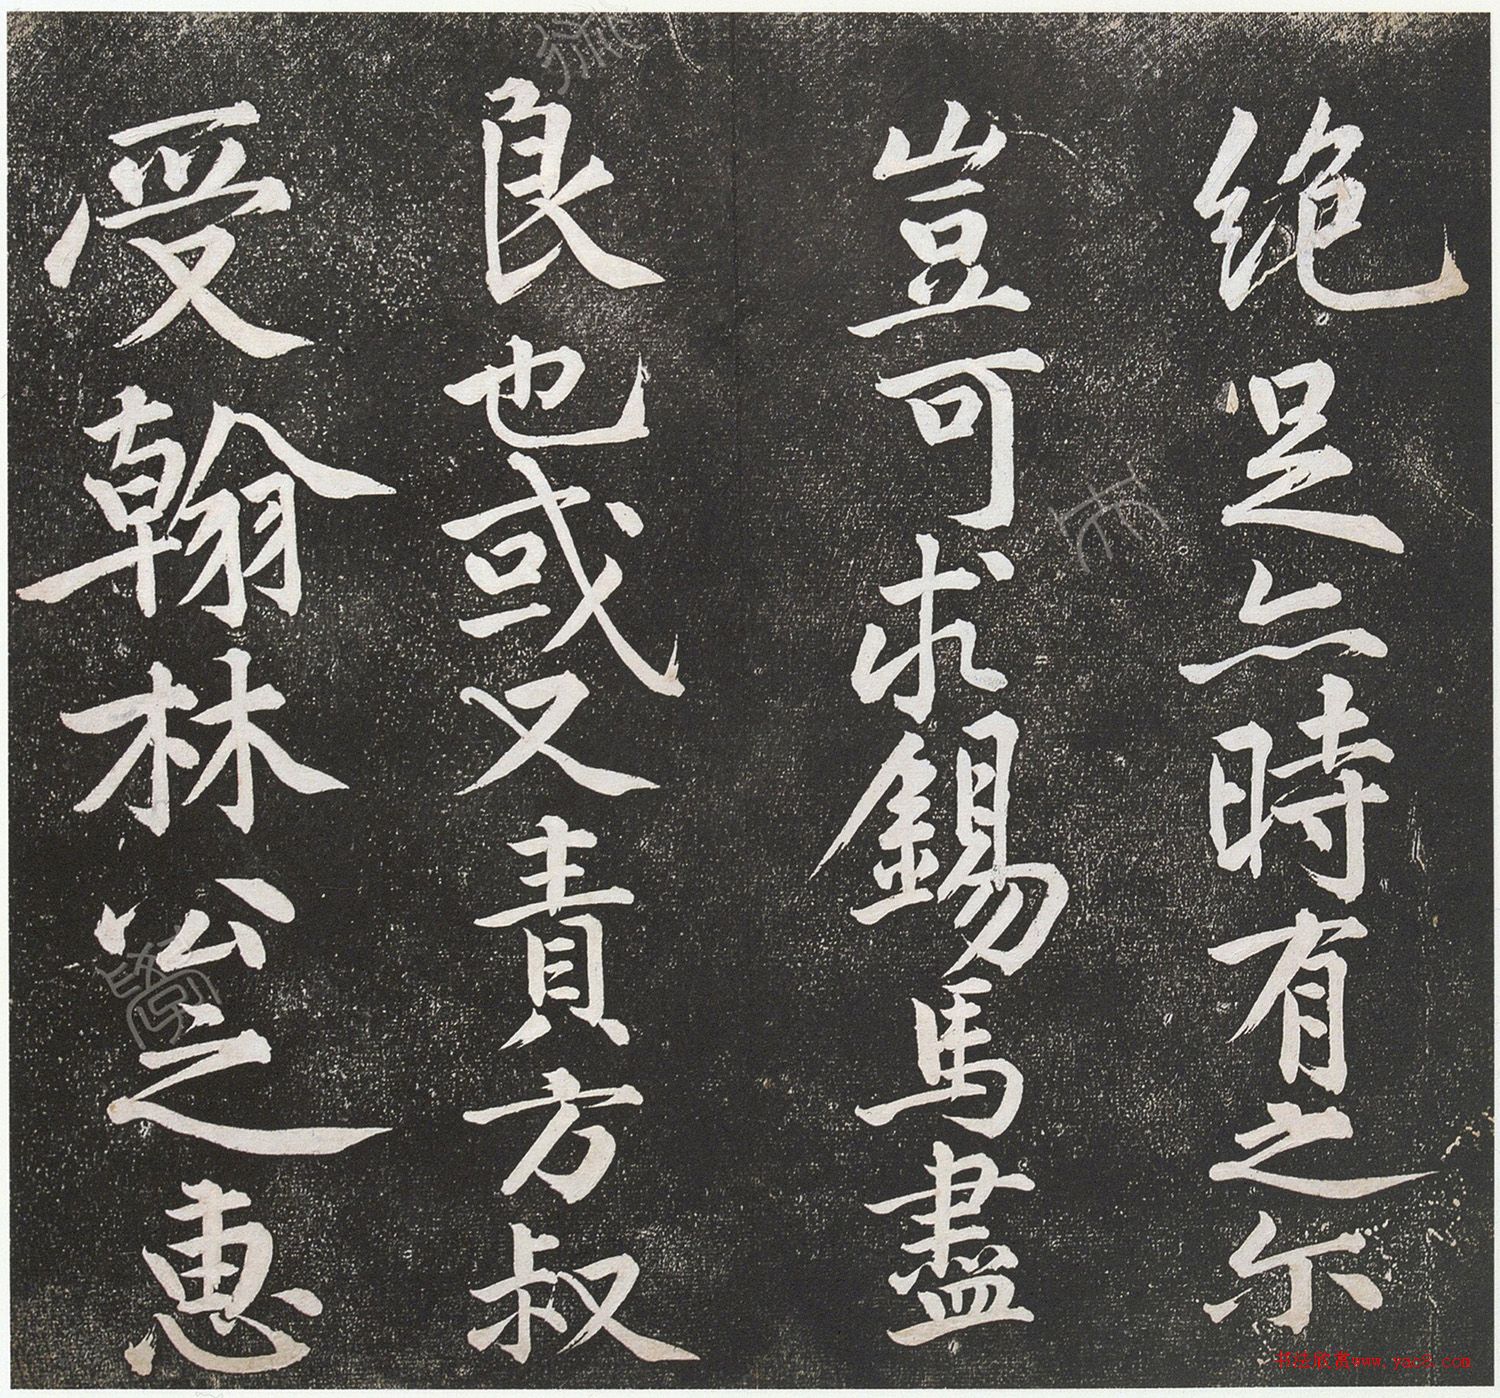 绝足亦時有之尔
豈可求錫馬盡
良也或又責方叔
受翰林公之惠
书法欣赏www.yac8.com